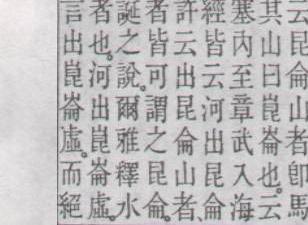 云昆侖山者卽馬
其山曰崑崙也。云
塞內至章武入海
經皆云河出昆侖
許云出昆侖山者、
者皆可謂之昆侖。
誕之說。爾雅釋水
者也。河出崑崙虛。
言出崑崙虛。而絕